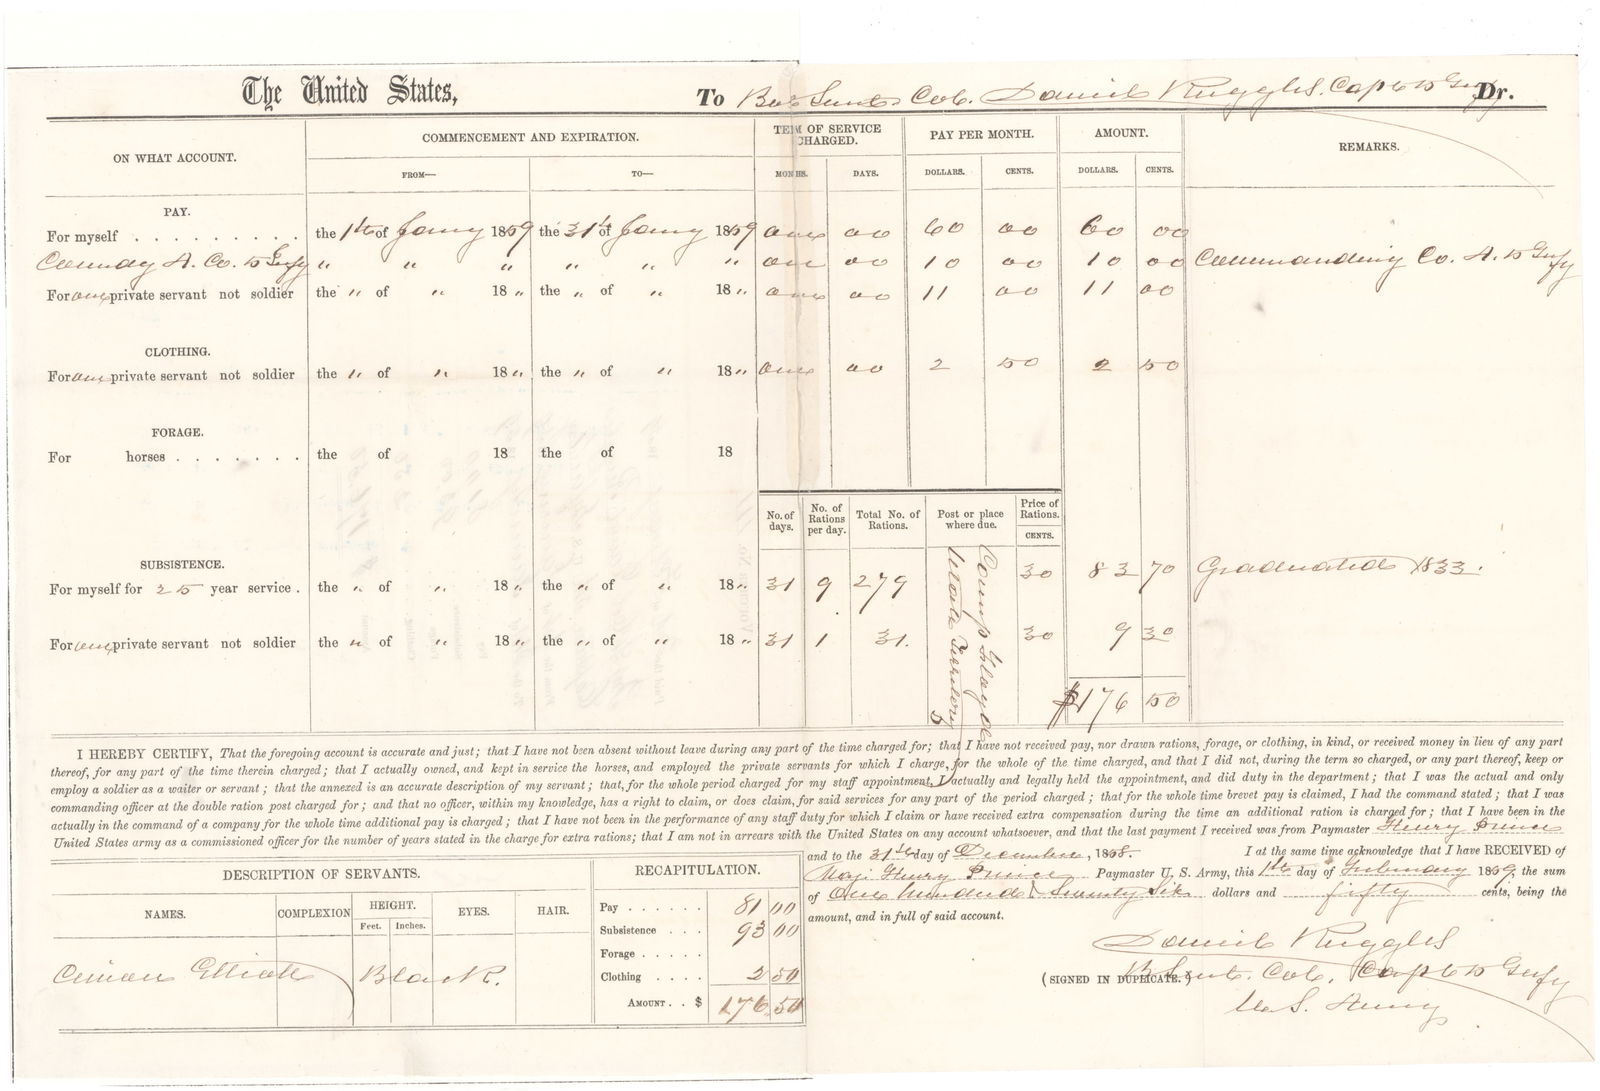 The United States, To Bvt Lieut. Col. Daniel Ruggles. Capt 5 Infy Dr.
ON WHAT ACCOUNT. COMMENCEMENT AND EXPIRATION. TERM OF SERVICE CHARGED. PAY PER MONTH. AMOUNT. REMARKS.
FROM— TO— MONTHS. DAYS. DOLLARS. CENTS. DOLLARS. CENTS.
PAY.
For myself . . . . . . . . . the 1st of Jany 1859 the 31st of Jany 1859 one 00 60 00 60 00
Comndg A. Co. 5 Infy " " " " " " one 00 10 00 10 00 Commanding Co. A. 5 Infy
For one private servant not soldier the " of " 18 " the " of " 18 " one 00 11 00 11 00
CLOTHING.
For one private servant not soldier the " of " 18 " the " of " 18 " one 00 2 50 2 50
FORAGE.
For horses . . . . . . . the of 18 the of 18
No. of days. No. of Rations per day. Total No. of Rations. Post or place where due. Price of Rations. CENTS.
SUBSISTENCE.
For myself for 25 year service . the " of " 18 " the " of " 18 " 31 9 279 Camp Floyd Utah Territory 30 83 70 Graduated 1833.
For one private servant not soldier the " of " 18 " the " of " 18 " 31 1 31. 30 9 30
$176 50
I HEREBY CERTIFY, That the foregoing account is accurate and just; that I have not been absent without leave during any part of the time charged for; that I have not received pay, nor drawn rations, forage, or clothing, in kind, or received money in lieu of any part
thereof, for any part of the time therein charged; that I actually owned, and kept in service the horses, and employed the private servants for which I charge, for the whole of the time charged, and that I did not, during the term so charged, or any part thereof, keep or
employ a soldier as a waiter or servant; that the annexed is an accurate description of my servant; that, for the whole period charged for my staff appointment, I actually and legally held the appointment, and did duty in the department; that I was the actual and only
commanding officer at the double ration post charged for; and that no officer, within my knowledge, has a right to claim, or does claim, for said services for any part of the period charged; that for the whole time brevet pay is claimed, I had the command stated; that I was
actually in the command of a company for the whole time additional pay is charged; that I have not been in the performance of any staff duty for which I claim or have received extra compensation during the time an additional ration is charged for; that I have been in the
United States army as a commissioned officer for the number of years stated in the charge for extra rations; that I am not in arrears with the United States on any account whatsoever, and that the last payment I received was from Paymaster Henry Prince
and to the 31st day of December, 1858. I at the same time acknowledge that I have RECEIVED of
Maj. Henry Prince Paymaster U. S. Army, this 1st day of February 1859, the sum
of One hundred & Seventy Six dollars and fifty cents, being the
amount, and in full of said account.
DESCRIPTION OF SERVANTS.
NAMES. COMPLEXION HEIGHT. EYES. HAIR.
Feet. Inches.
Elliott Black.
RECAPITULATION.
Pay . . . . . . 81 00
Subsistence . . . 93 00
Forage . . . . .
Clothing . . . . 2 50
AMOUNT . . $ 176.50
Daniel Ruggles
(SIGNED IN DUPLICATE.) Bt Lieut. Col. Capt 5 Infy
U. S. Army